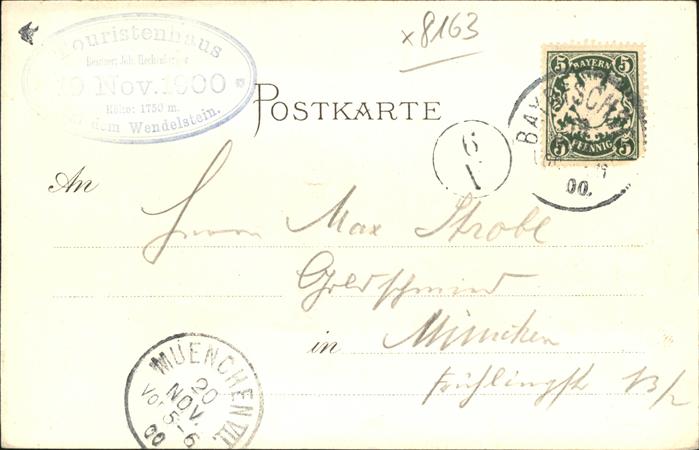 x8163
Touristenhaus
Besitzer: Joh.
19 Nov. 1900
Höhe: 1750 m.
dem Wendelstein.
POSTKARTE
5 BAYERN 5
5 PFENNIG 5
BAY SCH
00.
6
1
An
Herrn Max Strobl
Goldschmied
in München
Frühlingstr 13/2
MUENCHEN VII.
20
NOV.
Vo 5-6
00